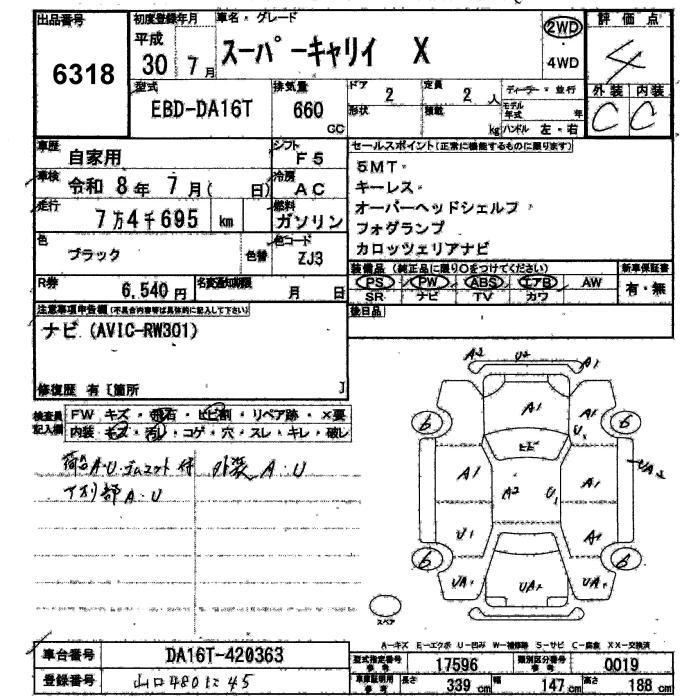 出品番号 初度登録年月 車名・グレード 評価点
6318 平成 30年 7月 スーパーキャリイ X 2WD 4
4WD
型式 排気量 ドア 定員 ディーラー・並行 外装 内装
EBD-DA16T 660 CC 2 2人 モデル年式 年 C C
形状 積載 kg ハンドル 左・右
車歴 自家用 シフト F5 セールスポイント(正常に機能するものに限ります)
車検 令和 8年 7月( 日) 冷房 AC 5MT
走行 7万4千695 km 燃料 ガソリン キーレス
オーバーヘッドシェルフ
フォグランプ
色 ブラック 色替 色コード ZJ3 カロッツェリアナビ
R券 6,540円 名変通知期限 月 日 装備品 (純正品に限り○をつけてください) 新車保証書
PS PW ABS エアB AW 有・無
SR ナビ TV カワ
注意事項申告欄(不具合内容等は具体的に記入して下さい) 後日品
ナビ (AVIC-RW301)
修復歴 有 [箇所 ]
検査員記入欄 FW キズ・飛石・ヒビ割・リペア跡・×要
内装・キズ・汚レ・コゲ・穴・スレ・キレ・破レ
荷台A・U・ゴムマット付 外装 A・U
下廻部 A・U
A2 U2 A1
A1 U
6 6
ヒビ
A1 A2 U A1
U1 A1
6 6
UA UA UA
スペア
A-キズ E-エクボ U-凹み W-補修跡 S-サビ C-腐食 XX-交換済
車台番号 DA16T-420363 型式指定番号 参考 17596 類別区分番号 参考 0019
登録番号 山口480に45 車庫証明用 参考 長さ 339 cm 幅 147 cm 高さ 188 cm